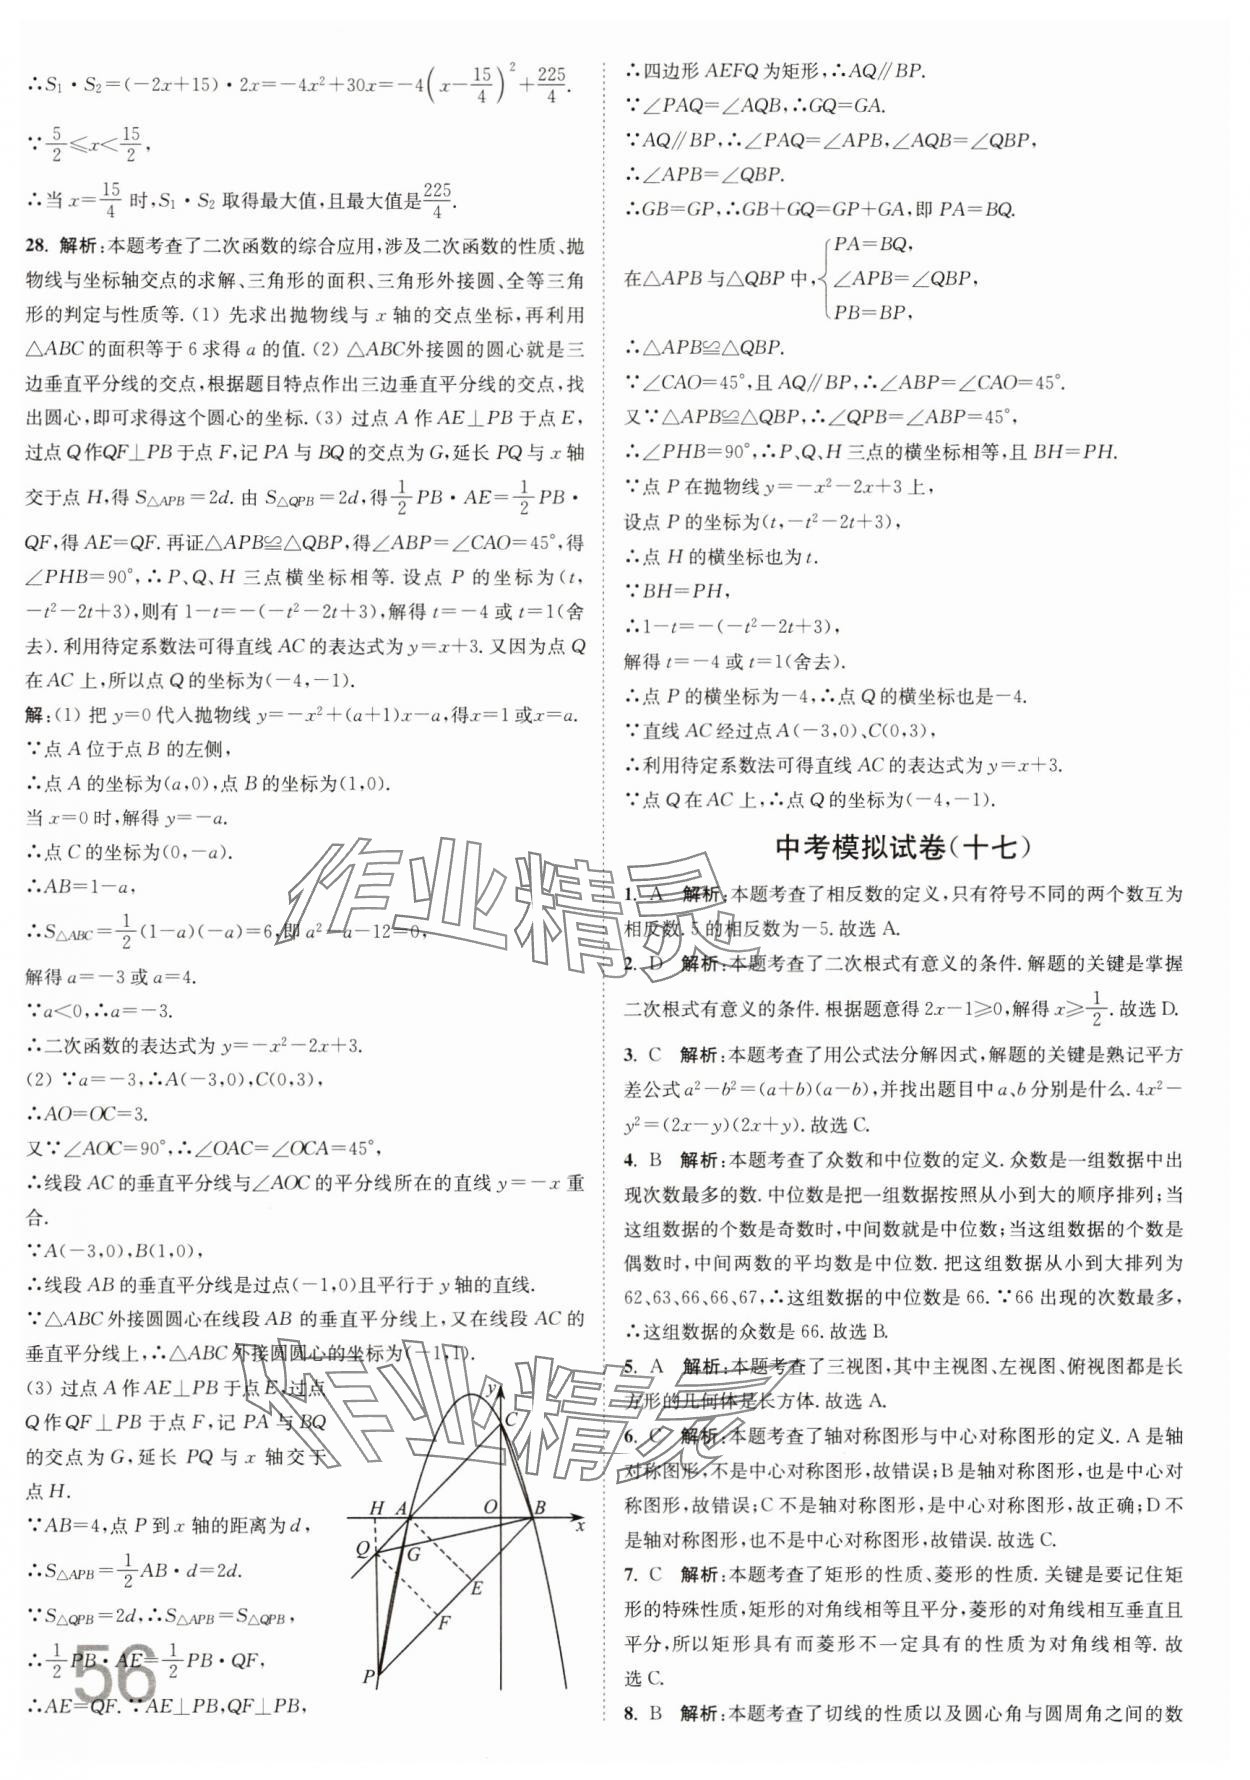 ∴S₁·S₂=(-2x+15)·2x=-4x²+30x=-4(x-15/4)²+225/4.
∵5/2≤x<15/2,
∴当 x=15/4 时,S₁·S₂ 取得最大值,且最大值是225/4.
28. 解析:本题考查了二次函数的综合应用,涉及二次函数的性质、抛
物线与坐标轴交点的求解、三角形的面积、三角形外接圆、全等三角
形的判定与性质等.(1) 先求出抛物线与 x 轴的交点坐标,再利用
△ABC 的面积等于 6 求得 a 的值.(2) △ABC外接圆的圆心就是三
边垂直平分线的交点,根据题目特点作出三边垂直平分线的交点,找
出圆心,即可求得这个圆心的坐标.(3) 过点 A 作 AE⊥PB 于点 E,
过点 Q 作QF⊥PB 于点 F,记 PA 与 BQ 的交点为 G,延长 PQ 与 x 轴
交于点 H,得 S△APB=2d.由 S△QPB=2d,得1/2 PB·AE=1/2 PB·
QF,得 AE=QF.再证△APB≌△QBP,得∠ABP=∠CAO=45°,得
∠PHB=90°,∴P、Q、H 三点横坐标相等.设点 P 的坐标为(t,
-t²-2t+3),则有 1-t=-(-t²-2t+3),解得 t=-4 或 t=1(舍
去).利用待定系数法可得直线 AC 的表达式为 y=x+3.又因为点 Q
在 AC 上,所以点 Q 的坐标为(-4,-1).
解:(1) 把 y=0 代入抛物线 y=-x²+(a+1)x-a,得x=1 或x=a.
∵点 A 位于点 B 的左侧,
∴点 A 的坐标为(a,0),点 B 的坐标为(1,0).
当 x=0 时,解得 y=-a.
∴点 C 的坐标为(0,-a).
∴AB=1-a,
∴S△ABC=1/2(1-a)(-a)=6,即 a²-a-12=0,
解得 a=-3 或 a=4.
∵a<0,∴a=-3.
∴二次函数的表达式为 y=-x²-2x+3.
(2) ∵a=-3,∴A(-3,0),C(0,3),
∴AO=OC=3.
又∵∠AOC=90°,∴∠OAC=∠OCA=45°,
∴线段 AC 的垂直平分线与∠AOC 的平分线所在的直线 y=-x 重
合.
∵A(-3,0),B(1,0),
∴线段 AB 的垂直平分线是过点(-1,0)且平行于 y 轴的直线.
∵△ABC 外接圆圆心在线段 AB 的垂直平分线上,又在线段 AC 的
垂直平分线上,∴△ABC 外接圆圆心的坐标为(-1,1).
(3) 过点 A 作 AE⊥PB 于点 E,过点
Q 作 QF⊥PB 于点 F,记 PA 与 BQ
的交点为 G,延长 PQ 与 x 轴交于
点 H.
∵AB=4,点 P 到 x 轴的距离为 d,
∴S△APB=1/2 AB·d=2d.
∵S△QPB=2d,∴S△APB=S△QPB,
∴1/2 PB·AE=1/2 PB·QF,
∴AE=QF.∵AE⊥PB,QF⊥PB,
y
C
H A O B x
Q G E
F
P
56
∴四边形 AEFQ 为矩形,∴AQ∥BP.
∵∠PAQ=∠AQB,∴GQ=GA.
∵AQ∥BP,∴∠PAQ=∠APB,∠AQB=∠QBP,
∴∠APB=∠QBP.
∴GB=GP,∴GB+GQ=GP+GA,即 PA=BQ.
在△APB 与△QBP 中,{PA=BQ,
∠APB=∠QBP,
PB=BP,
∴△APB≌△QBP.
∵∠CAO=45°,且 AQ∥BP,∴∠ABP=∠CAO=45°.
又∵△APB≌△QBP,∴∠QPB=∠ABP=45°,
∴∠PHB=90°,∴P、Q、H 三点的横坐标相等,且 BH=PH.
∵点 P 在抛物线 y=-x²-2x+3 上,
设点 P 的坐标为(t,-t²-2t+3),
∴点 H 的横坐标也为 t.
∵BH=PH,
∴1-t=-(-t²-2t+3),
解得 t=-4 或 t=1(舍去).
∴点 P 的横坐标为-4,∴点 Q 的横坐标也是-4.
∵直线 AC 经过点 A(-3,0)、C(0,3),
∴利用待定系数法可得直线 AC 的表达式为 y=x+3.
∵点 Q 在 AC 上,∴点 Q 的坐标为(-4,-1).
中考模拟试卷(十七)
1. A 解析:本题考查了相反数的定义,只有符号不同的两个数互为
相反数.5 的相反数为-5.故选 A.
2. D 解析:本题考查了二次根式有意义的条件.解题的关键是掌握
二次根式有意义的条件.根据题意得 2x-1≥0,解得 x≥1/2.故选 D.
3. C 解析:本题考查了用公式法分解因式,解题的关键是熟记平方
差公式 a²-b²=(a+b)(a-b),并找出题目中 a、b 分别是什么.4x²-
y²=(2x-y)(2x+y).故选 C.
4. B 解析:本题考查了众数和中位数的定义.众数是一组数据中出
现次数最多的数.中位数是把一组数据按照从小到大的顺序排列;当
这组数据的个数是奇数时,中间数就是中位数;当这组数据的个数是
偶数时,中间两数的平均数是中位数.把这组数据从小到大排列为
62,63,66,66,67,∴这组数据的中位数是 66.∵66 出现的次数最多,
∴这组数据的众数是 66.故选 B.
5. A 解析:本题考查了三视图,其中主视图、左视图、俯视图都是长
方形的几何体是长方体.故选 A.
6. C 解析:本题考查了轴对称图形与中心对称图形的定义.A 是轴
对称图形,不是中心对称图形,故错误;B 是轴对称图形,也是中心对
称图形,故错误;C 不是轴对称图形,是中心对称图形,故正确;D 不
是轴对称图形,也不是中心对称图形,故错误.故选 C.
7. C 解析:本题考查了矩形的性质、菱形的性质.关键是要记住矩
形的特殊性质,矩形的对角线相等且平分,菱形的对角线相互垂直且
平分,所以矩形具有而菱形不一定具有的性质为对角线相等.故
选 C.
8. B 解析:本题考查了切线的性质以及圆心角与圆周角之间的数
作业精灵
作业精灵